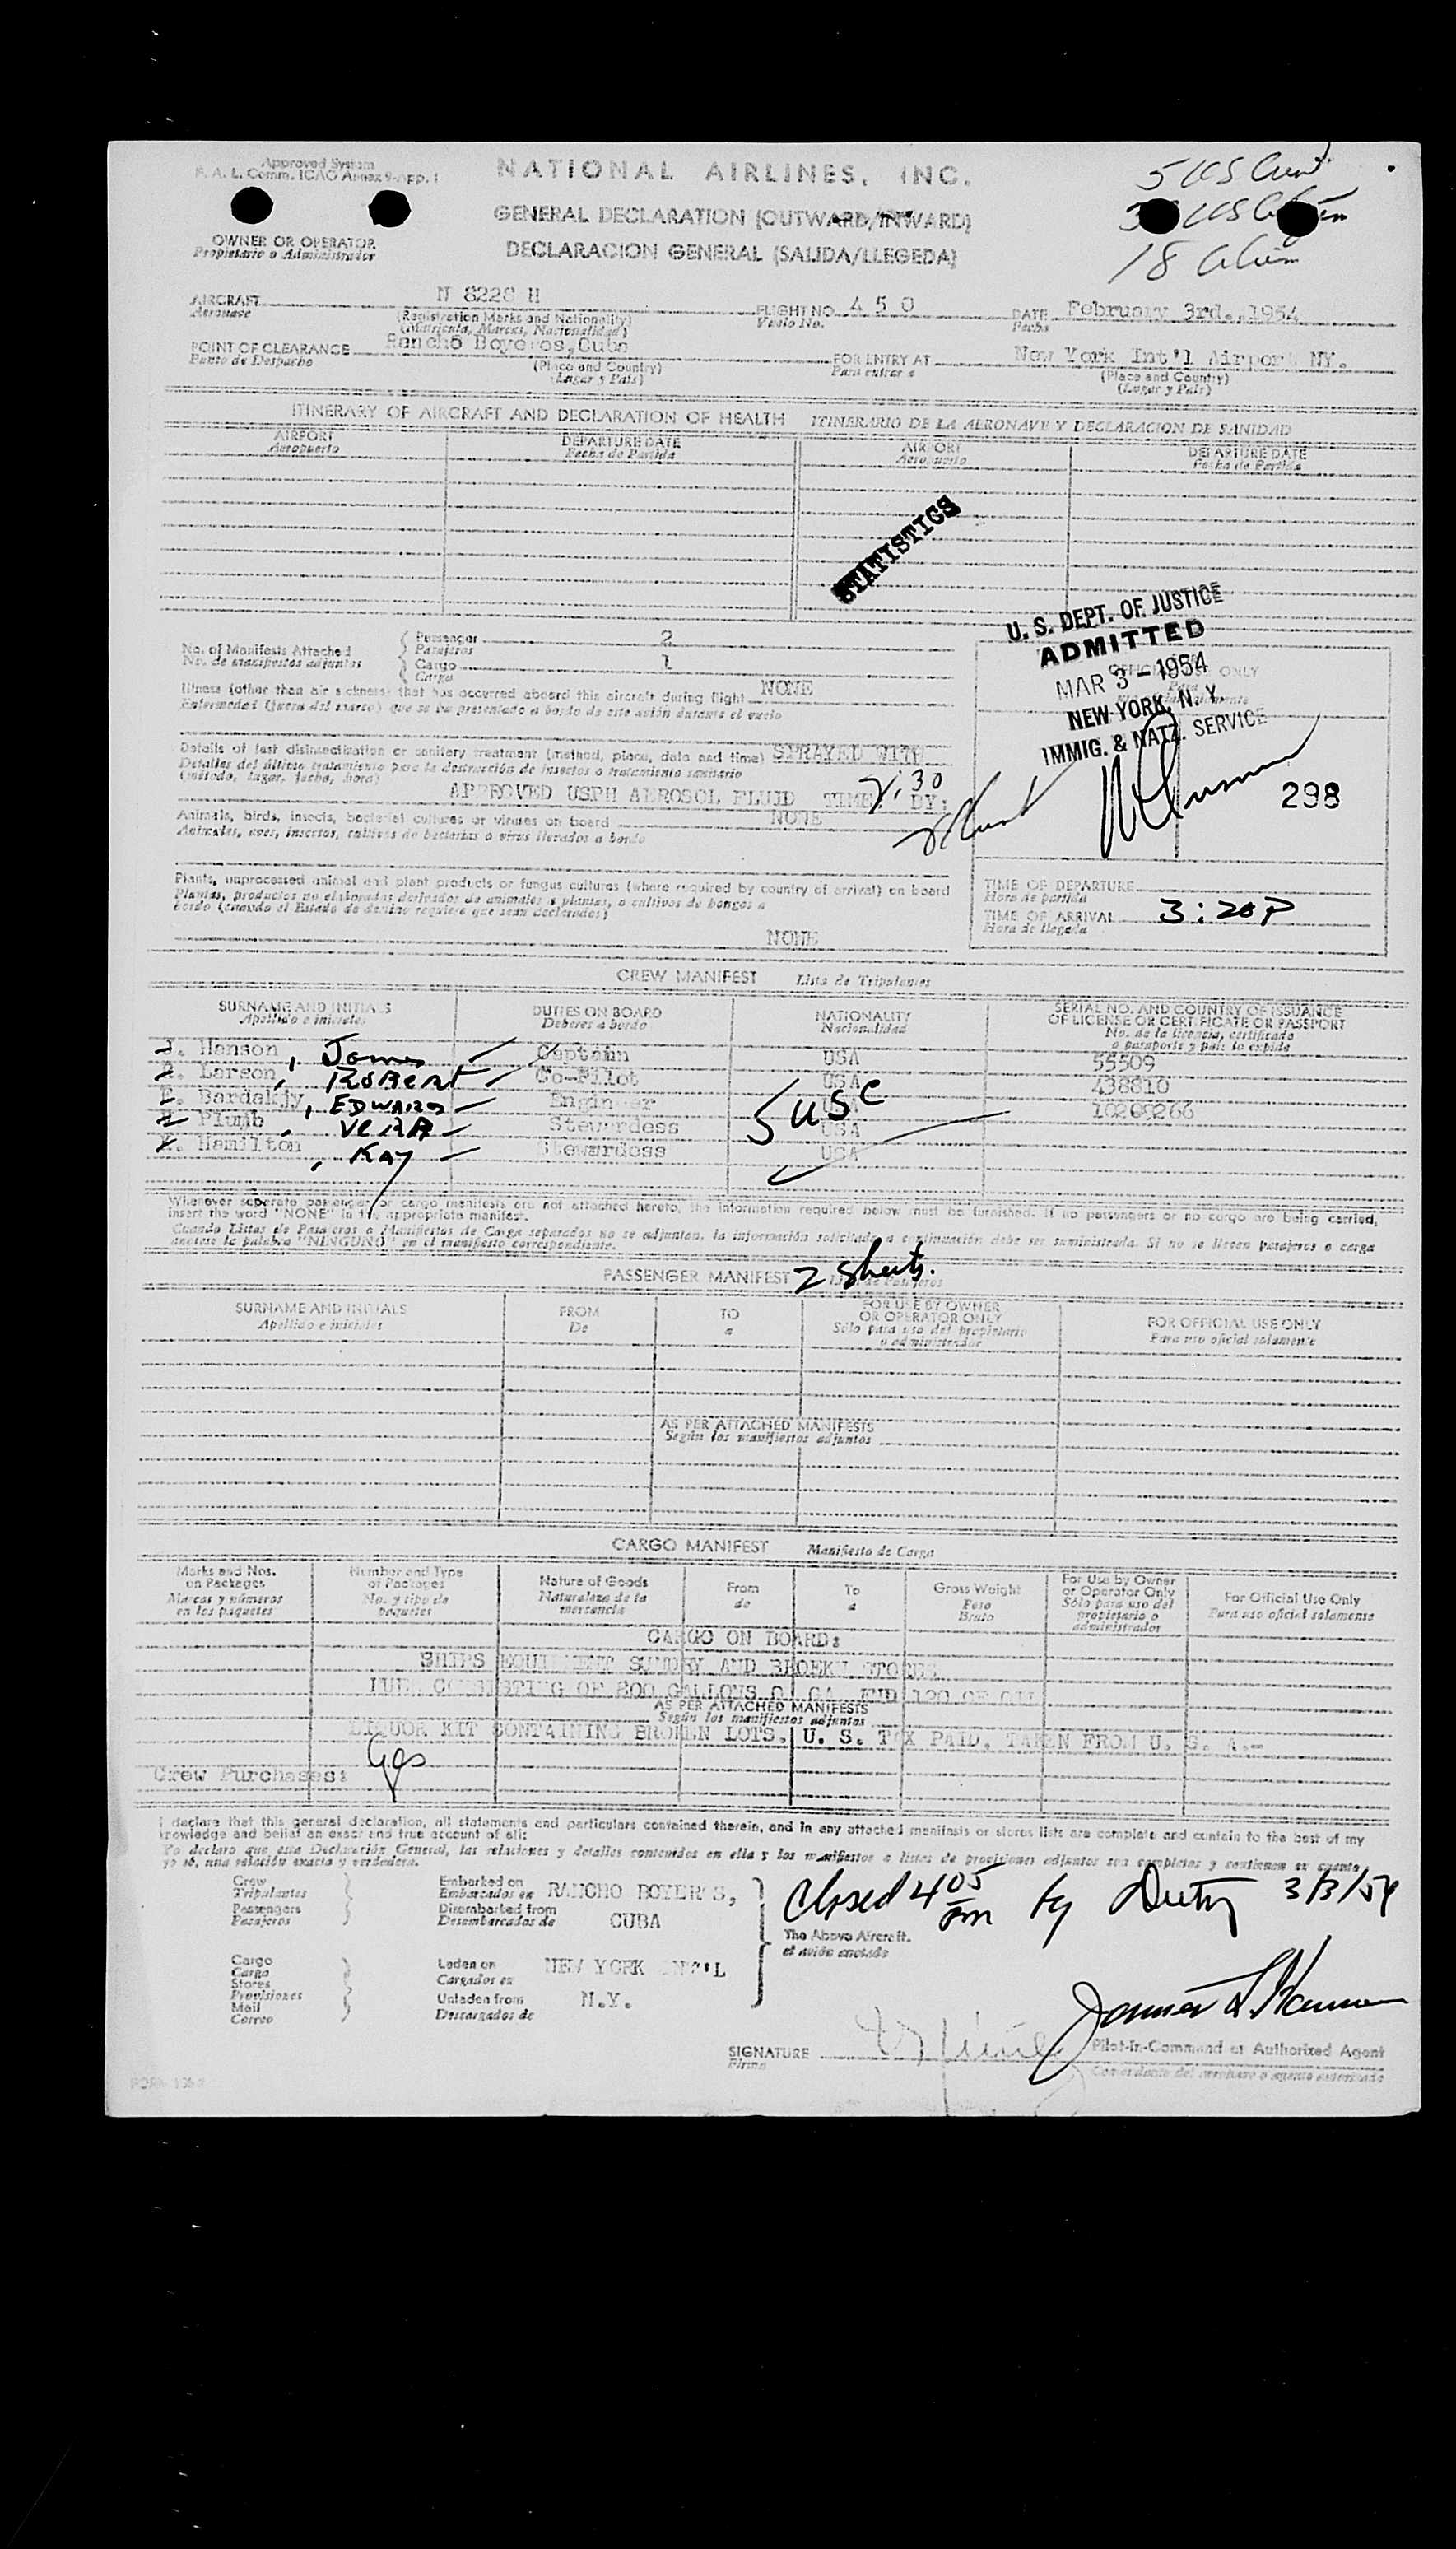 Approved System
F. A. L. Comm. ICAO Annex 9-App. 1
NATIONAL AIRLINES, INC.
GENERAL DECLARATION (OUTWARD/INWARD)
DECLARACION GENERAL (SALIDA/LLEGEDA)
5 US Crew
US Citizen
18 Alien
OWNER OR OPERATOR
Propietario o Administrador
AIRCRAFT N 8228 H FLIGHT NO. 450 DATE February 3rd.,1954
Aeronave (Registration Marks and Nationality) Vuelo No. Fecha
(Matricula, Marcas, Nacionalidad)
POINT OF CLEARANCE Rancho Boyeros,Cuba FOR ENTRY AT New York Int'l Airport NY.
Punto de Despacho (Place and Country) Para entrar a (Place and Country)
(Lugar y Pais) (Lugar y Pais)
ITINERARY OF AIRCRAFT AND DECLARATION OF HEALTH ITINERARIO DE LA AERONAVE Y DECLARACION DE SANIDAD
AIRPORT DEPARTURE DATE AIRPORT DEPARTURE DATE
Aeropuerto Fecha de Partida Aeropuerto Fecha de Partida
STATISTICS
U. S. DEPT. OF JUSTICE
ADMITTED
MAR 3 - 1954
NEW YORK, N. Y.
IMMIG. & NATZ. SERVICE
298
No. of Manifests Attached Passenger 2
No. de manifiestos adjuntos Pasajeros
Cargo 1
Carga
Illness (other than air sickness) that has occurred aboard this aircraft during flight NONE
Enfermedad (fuera del mareo) que se ha presentado a bordo de este avión durante el vuelo
Details of last disinsectization or sanitary treatment (method, place, date and time) SPRAYED WITH
Detalles del último tratamiento para la destrucción de insectos o tratamiento sanitario
(método, lugar, fecha, hora)
APPROVED USPH AEROSOL FLUID TIME: 2:30 BY:
Animals, birds, insects, bacterial cultures or viruses on board NONE
Animales, aves, insectos, cultivos de bacterias o virus llevados a bordo
Plants, unprocessed animal and plant products or fungus cultures (where required by country of arrival) on board
Plantas, productos no elaborados derivados de animales y plantas, o cultivos de hongos a
bordo (cuando el Estado de destino requiere que sean declarados)
NONE
TIME OF DEPARTURE
Hora de partida
TIME OF ARRIVAL 3:20P
Hora de llegada
CREW MANIFEST Lista de Tripulantes
SURNAME AND INITIALS DUTIES ON BOARD NATIONALITY SERIAL NO. AND COUNTRY OF ISSUANCE
Apellido e iniciales Deberes a bordo Nacionalidad OF LICENSE OR CERTIFICATE OR PASSPORT
No. de la licencia, certificado
o pasaporte y pais lo expide
Hanson, James Captain USA 55509
Larson, ROBERT Co-Pilot USA 438810
Bardakjy, EDWARD Engineer USA
Plumb, VERA Stewardess USA
Hamilton, KAY Stewardess USA
5 USC
Whenever seperate passenger or cargo manifests are not attached hereto, the information required below must be furnished. If no passengers or no cargo are being carried,
insert the word "NONE" in the appropriate manifest.
Cuando Listas de Pasajeros o Manifiestos de Carga separados no se adjuntan, la información solicitada a continuación debe ser suministrada. Si no se llevan pasajeros o carga
anotese la palabra "NINGUNO" en el manifiesto correspondiente.
PASSENGER MANIFEST 2 Sheets.
SURNAME AND INITIALS FROM TO FOR USE BY OWNER FOR OFFICIAL USE ONLY
Apellido e iniciales De a OR OPERATOR ONLY Para uso oficial solamente
Sólo para uso del propietario
o administrador
AS PER ATTACHED MANIFESTS
Según los manifiestos adjuntos
CARGO MANIFEST Manifiesto de Carga
Marks and Nos. Number and Type Nature of Goods From To Gross Weight For Use by Owner For Official Use Only
on Packages of Packages Naturaleza de la de a Peso or Operator Only Para uso oficial solamente
Marcas y números No. y tipo de mercancia Bruto Sólo para uso del
en los paquetes paquetes propietario o
administrador
CARGO ON BOARD:
SHIPS EQUIPMENT SUNDRY AND BROEKN STORES
CONSISTING OF 800 GALLONS AND 120 OF OIL
AS PER ATTACHED MANIFESTS
Según los manifiestos adjuntos
LIQUOR KIT CONTAINING BROKEN LOTS. U. S. TAX PAID, TAKEN FROM U. S. A.-
Crew Purchases:
I declare that this general declaration, all statements and particulars contained therein, and in any attached manifests or stores lists are complete and contain to the best of my
knowledge and belief an exact and true account of all:
Yo declaro que esta Declaración General, las relaciones y detalles contenidos en ella y los manifiestos o listas de provisiones adjuntos son completos y contienen en cuanto
yo sé, una relación exacta y verdadera.
Crew Embarked on RANCHO BOYEROS,
Tripulantes Embarcados en
Passengers Disembarked from CUBA
Pasajeros Desembarcados de
Closed 4 05 pm by 3/3/54
The Above Aircraft.
el avión anotado
Cargo Laden on NEW YORK INT'L
Carga Cargados en
Stores
Provisiones Unladen from N.Y.
Mail Descargados de
Correo
SIGNATURE James L. Hanson
Firma Pilot-in-Command or Authorized Agent
Comandante del aeroplano o agente autorizado